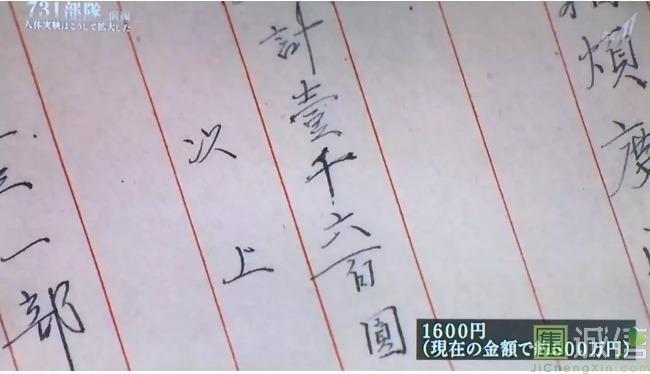 731部隊
人体実験はこうして拡大した
煩度
計壹千六百圓
以上
三一部
1600円
(現在の金額で約500万円)
集 诚信
JiChengXin.com